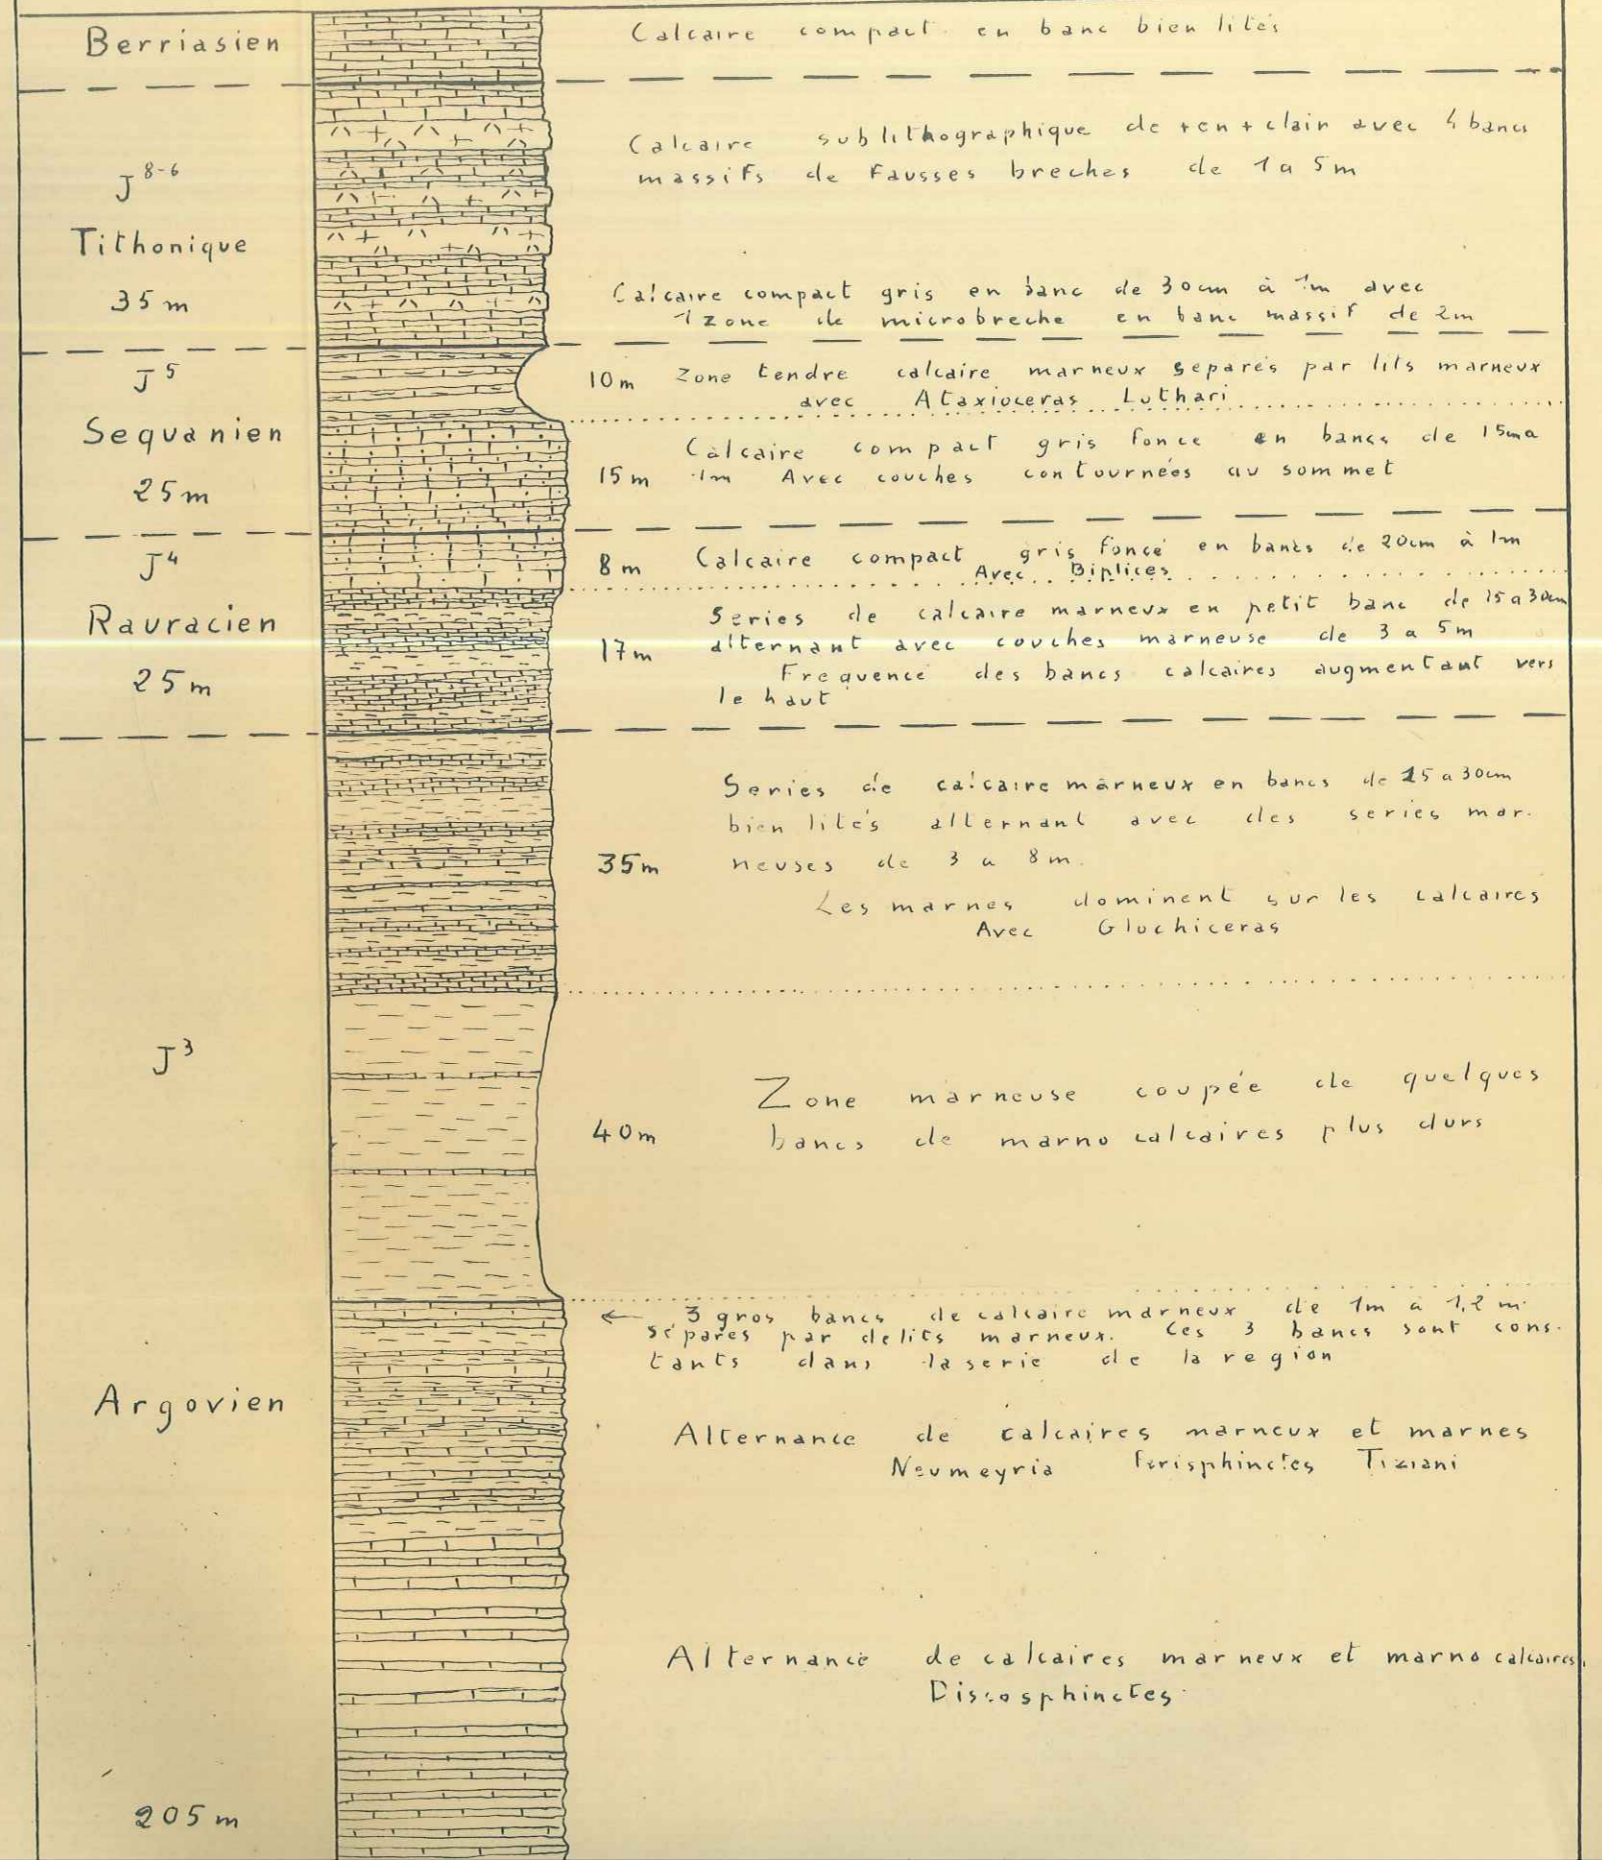 Berriasien
Calcaire compact en banc bien lités
J 8-6
Tithonique
35 m
Calcaire sublithographique de + en + clair avec 4 bancs
massifs de Fausses breches de 1 a 5 m
Calcaire compact gris en banc de 30cm à 1m avec
1 zone de microbreche en banc massif de 2m
J 5
Sequanien
25 m
10 m Zone tendre calcaire marneux separés par lits marneux
avec Ataxioceras Luthari
Calcaire compact gris Fonce en bancs de 15cm a
15 m 1m Avec couches contournées au sommet
J 4
Rauracien
25 m
8 m Calcaire compact gris Foncé en bancs de 20cm à 1m
Avec Biplices
Series de calcaire marneux en petit banc de 15 a 30cm
17 m alternant avec couches marneuse de 3 a 5m
Frequence des bancs calcaires augmentant vers
le haut
J 3
Argovien
205 m
Series de calcaire marneux en bancs de 25 a 30cm
bien lités alternant avec des series mar.
35 m neuses de 3 a 8 m.
Les marnes dominent sur les calcaires
Avec Glochiceras
Zone marneuse coupée de quelques
40 m bancs de marno calcaires plus durs
← 3 gros bancs de calcaire marneux de 1m a 1,2 m
séparés par delits marneux. Ces 3 bancs sont cons.
tants dans la serie de la region
Alternance de calcaires marneux et marnes
Neumeyria Perisphinctes Tiziani
Alternance de calcaires marneux et marno calcaires.
Discosphinctes